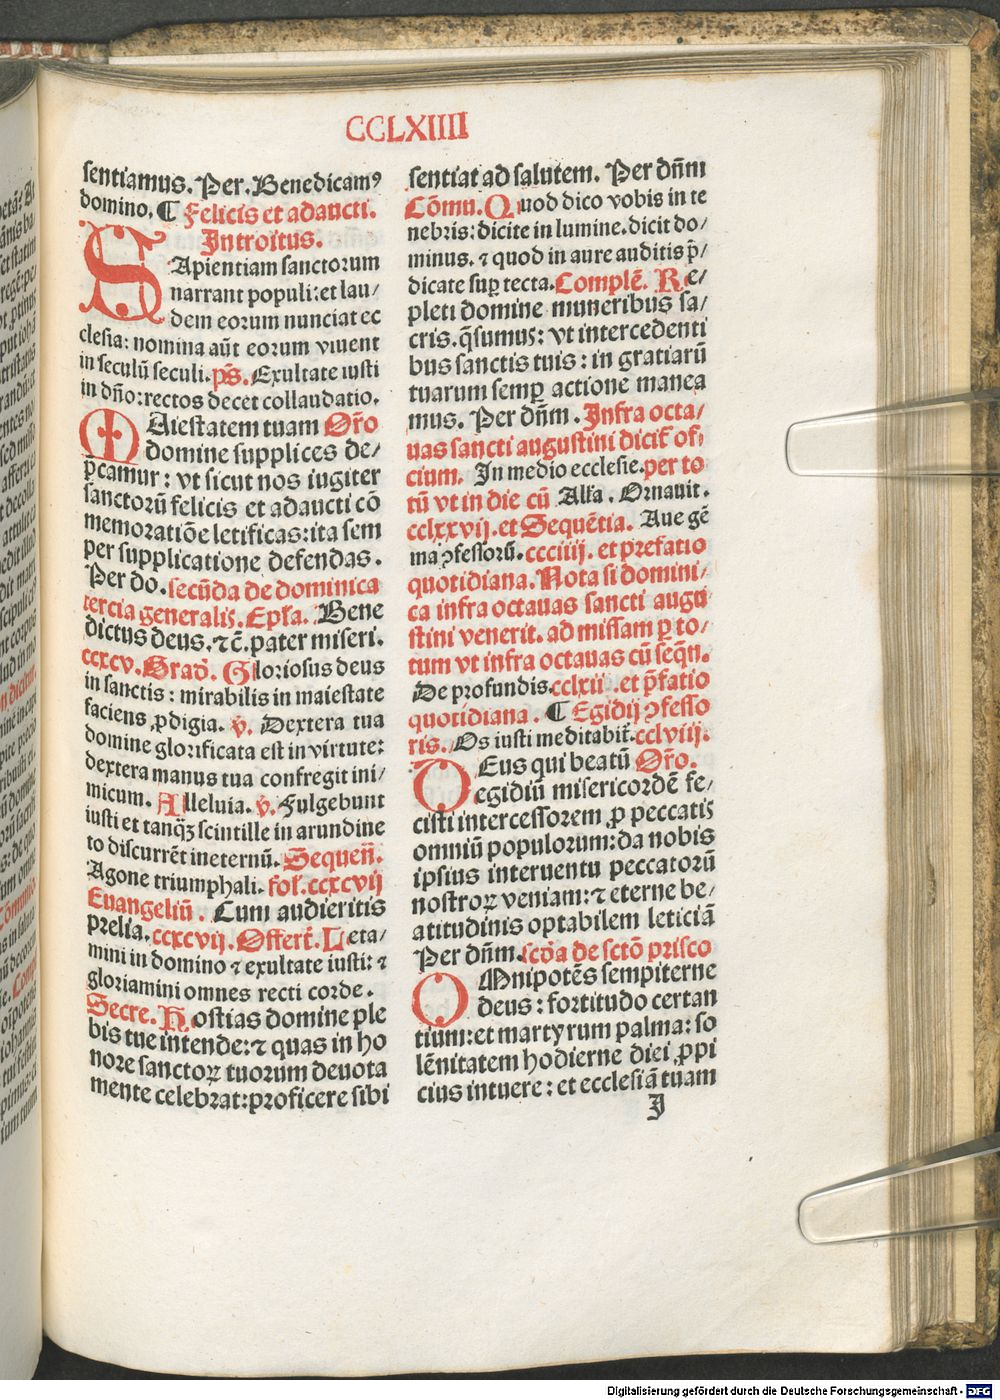 CCLXIIII
sentiamus. Per. Benedicamꝰ
domino. ¶ Felicis et adaucti.
Introitus.
SApientiam sanctorum
narrant populi: et lau/
dem eorum nunciat ec
clesia: nomina aūt eorum viuent
in seculū seculi. ps̄. Exultate iusti
in dn̄o: rectos decet collaudatio.
MAiestatem tuam Or̄o
domine supplices de/
p̄camur: vt sicut nos iugiter
sanctorū felicis et adaucti cō
memoratiōe letificas: ita sem
per supplicatione defendas.
Per do. secūda de dominica
tercia generalis. Epl̄a. Bene
dictus deus. ⁊c̄. pater miseri.
ccxcv. Grad̄. Gloriosus deus
in sanctis: mirabilis in maiestate
faciens ꝓdigia. ꝟ. Dextera tua
domine glorificata est in virtute:
dextera manus tua confregit ini/
micum. Alleluia. ꝟ. Fulgebunt
iusti et tanqꝫ scintille in arundine
to discurrēt ineternū. Sequen̄.
Agone triumphali. fol̄. ccxcvij
Euangeliū. Cum audieritis
prelia. ccxcvij. Offert̄. Leta/
mini in domino ⁊ exultate iusti: ⁊
gloriamini omnes recti corde.
Secre. Hostias domine ple
bis tue intende: ⁊ quas in ho
nore sanctoꝝ tuorum deuota
mente celebrat: proficere sibi
sentiat ad salutem. Per dn̄m
Cōmu. Quod dico vobis in te
nebris: dicite in lumine. dicit do/
minus. ⁊ quod in aure auditis p̄/
dicate suꝑ tecta. Complē. Re/
pleti domine muneribus sa/
cris. q̄sumus: vt intercedenti
bus sanctis tuis: in gratiarū
tuarum semꝑ actione manea
mus. Per dn̄m. Infra octa/
uas sancti augustini dicit̄ of/
cium. In medio ecclesie. per to
tū vt in die cū Alt̄a. Ornauit.
cclxxvij. et Sequētia. Aue gē
ma ꝯfessorū. ccciiij. et prefatio
quotidiana. Nota si domini/
ca infra octauas sancti augu
stini venerit. ad missam ꝑ to/
tum vt infra octauas cū seqn̄.
De profundis. cclxii. et p̄fatio
quotidiana. ¶ Egidij ꝯfesso
ris. Os iusti meditabit̄. cclviij.
DEus qui beatū Or̄o.
egidiū misericordē fe/
cisti intercessorem ꝓ peccatis
omniū populorum: da nobis
ipsius interuentu peccatorū
nostroꝝ veniam: ⁊ eterne be/
atitudinis optabilem leticiā
Per dn̄m. scd̄a de sctō prisco
OMnipotēs sempiterne
deus: fortitudo certan
tium: et martyrum palma: so
lēnitatem hodierne diei ꝓpi
cius intuere: et ecclesiā tuam
I
Digitalisierung gefördert durch die Deutsche Forschungsgemeinschaft - DFG